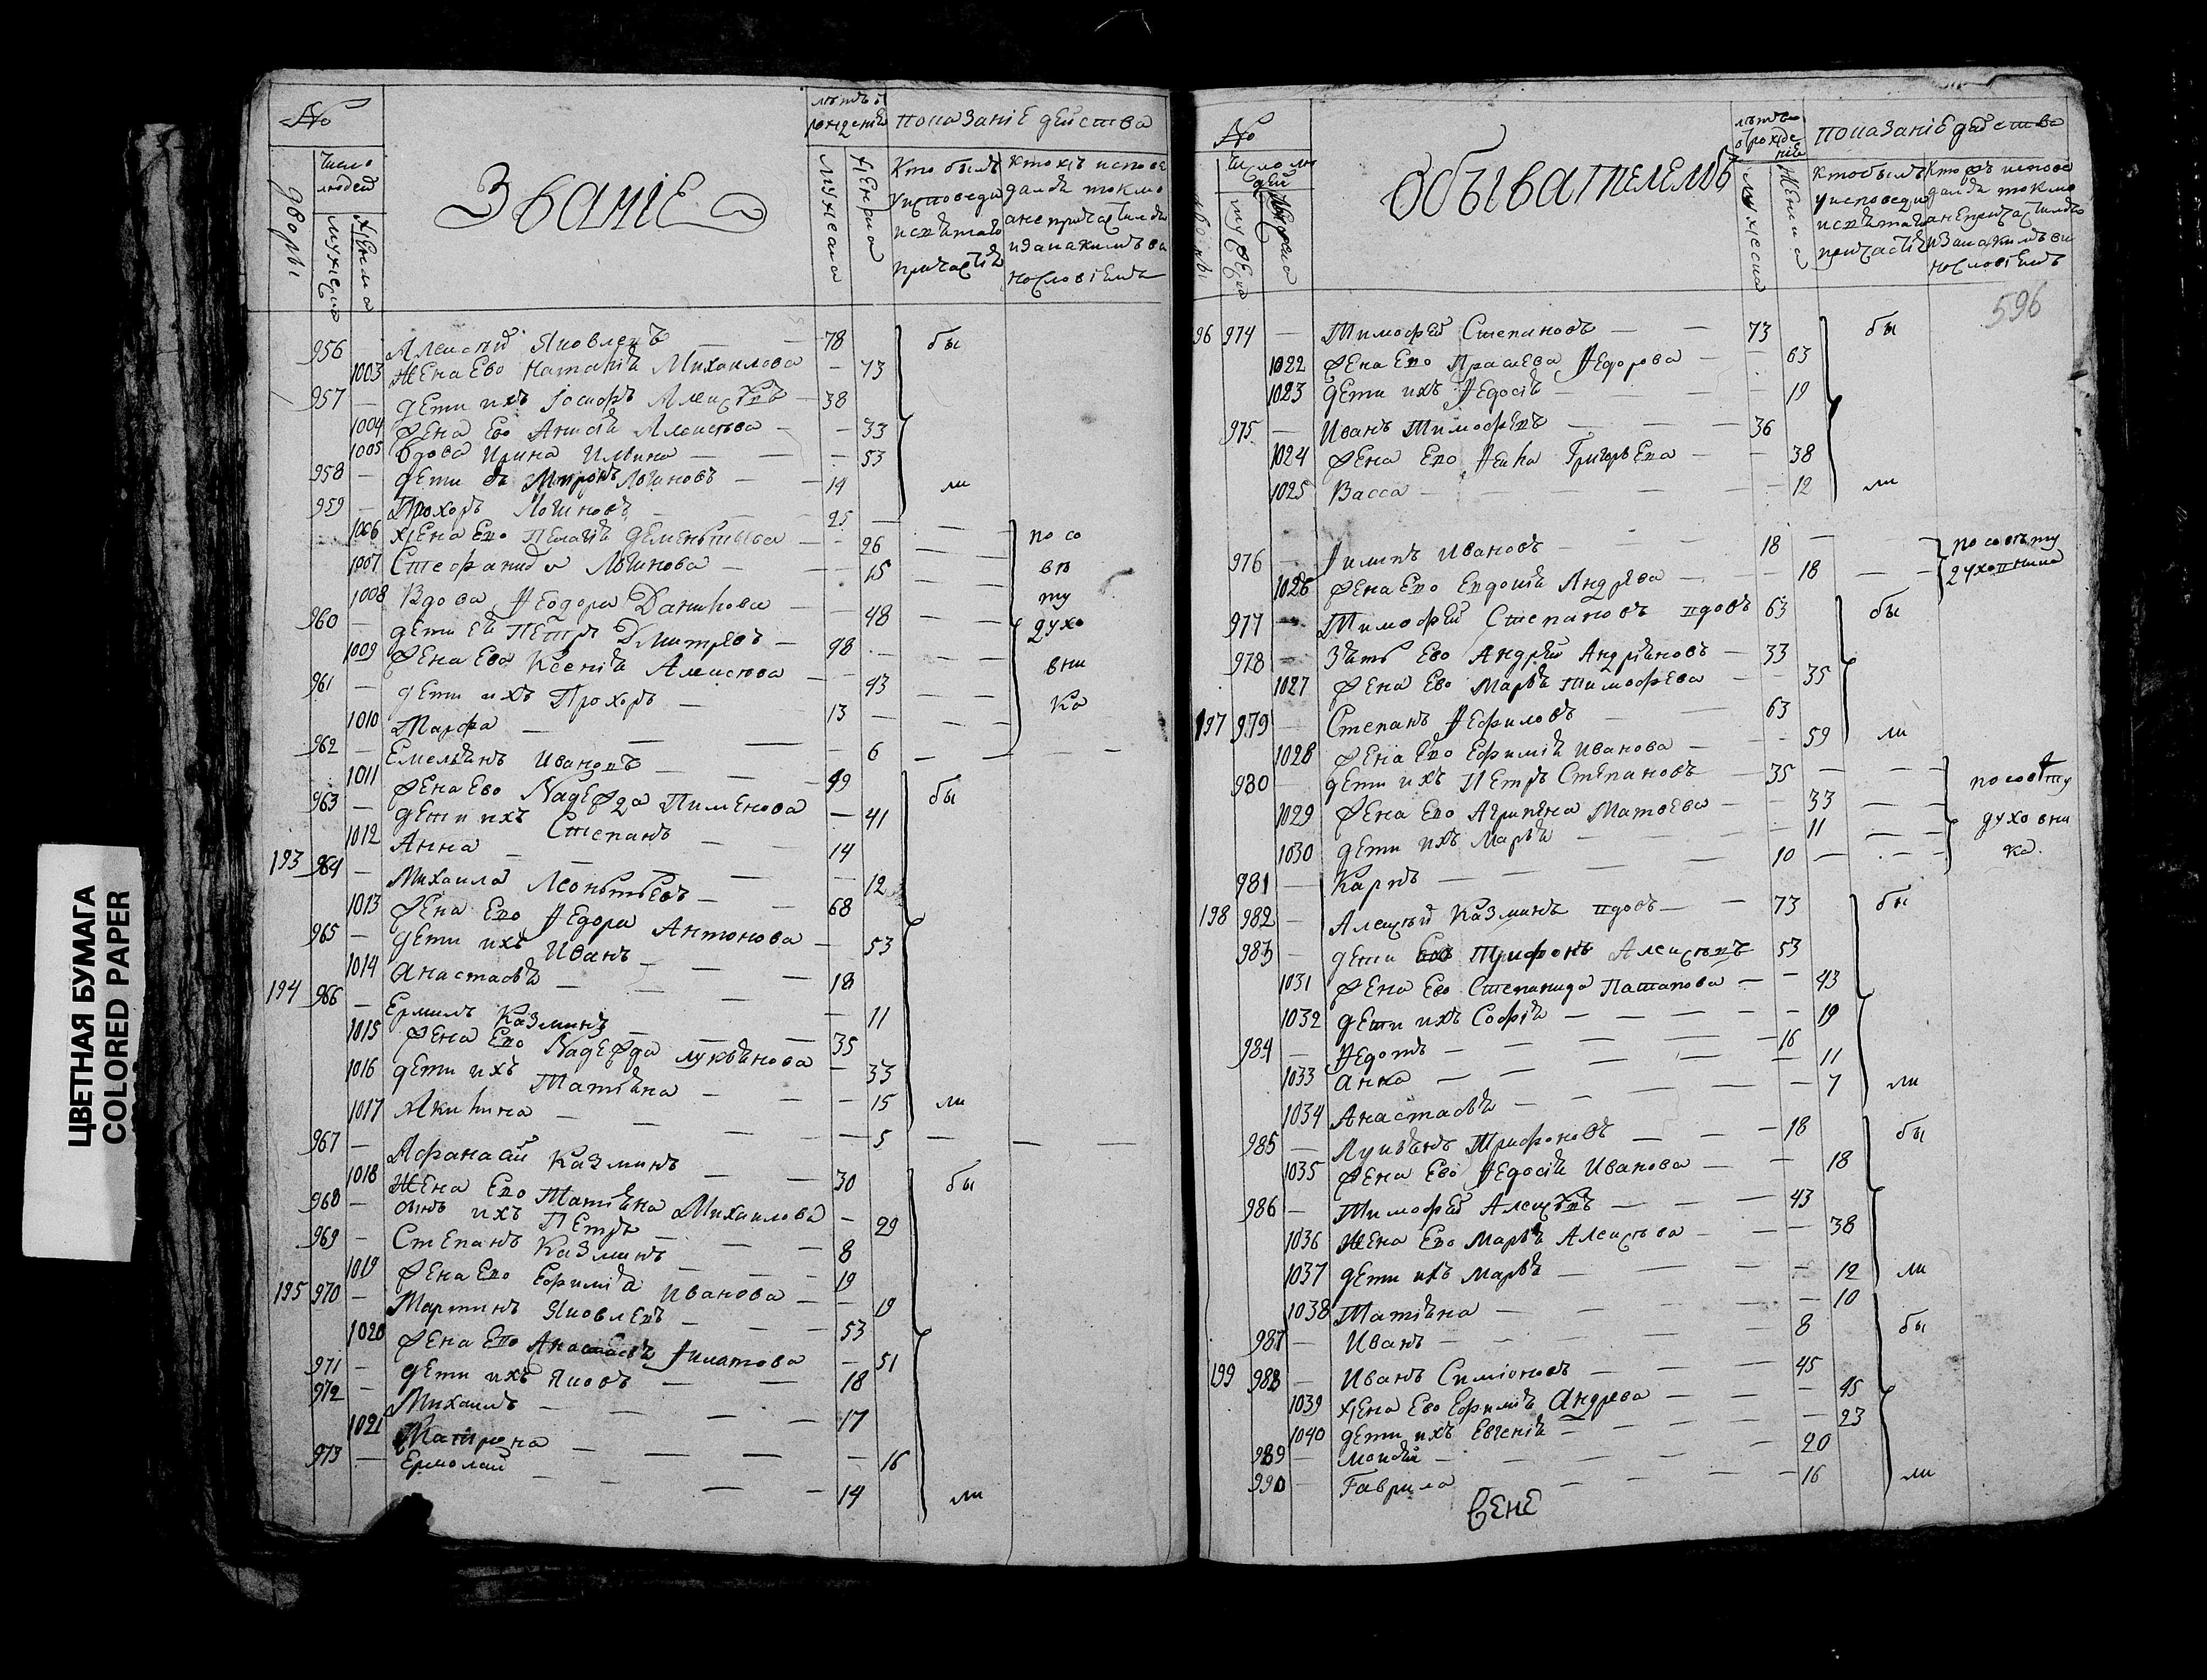 ЦВЕТНАЯ БУМАГА
COLORED PAPER
№
Число людей
дворы
мужеска
женска
Званіе
лѣтъ ѿ рожденія
мужеска
женска
показаніе действа
Кто былъ
у исповеди
и св҃таго
причастія
кто хъ испове
дался токмо
а не причастился
и за какимъ ви
нословіемъ
956 — Алексѣй Яковлевъ — 78 бы
1003 Жена Ево Наталія Михаилова — 73
957 — дети ихъ Іосифъ Алексѣевъ — 38
1004 Жена Ево Анисія Алексѣева — 33
1005 Вдова Ирина Ильина — 53
958 — дети Миронъ Логиновъ — 19 ли
959 — Прохоръ Логиновъ — 25
1006 Жена Ево Пелагія Дементьева — 26 по со
1007 Стефанида Логинова — 15 вѣ
1008 Вдова Ѳеодора Данилова — 48 ту
960 — дети ей Петръ Дмитрѣевъ — 28 духо
1009 Жена Ево Ксенія Алексѣева — 23 вни
961 — дети ихъ Прохоръ — 13 ка
1010 Марфа — 6
962 — Емельянъ Ивановъ — 49 бы
1011 Жена Ево Надежда Пименова — 41
963 — дети ихъ Степанъ — 14
1012 Анна — 12
193 964 — Михаила Леонтьевъ — 68
1013 Жена Ево Ѳедора Антонова — 53
965 — дети ихъ Иванъ — 18
1014 Анастасья — 11
194 966 — Ермилъ Казминъ — 35
1015 Жена Ево Надежда Лукьянова — 33
1016 дети ихъ Татьяна — 15 ли
1017 Акилина — 5
967 — Афанасий Казминъ — 30 бы
1018 Жена Ево Татьяна Михаилова — 29
968 — сынъ ихъ Петръ — 8
969 — Степанъ Казминъ — 19
1019 Жена Ево Ефимія Иванова — 19
195 970 — Мартинъ Яковлевъ — 53
1020 Жена Ево Анастасья Филатова — 51
971 — дети ихъ Яковъ — 18
972 — Михаилъ — 17
1021 Матрона — 16
973 — Ермолай — 14 ли
№
число людей
дворы
мужеска
женска
Обывателемъ
лѣтъ
ѿ рожде
нія
мужеска
женска
показаніе действа
Кто былъ
у исповеди
и св҃таго
причастія
Кто жъ испове
дался токмо
а не причастился
и за какимъ ви
нословіемъ
596
96 974 — Тимофей Степановъ — 73 бы
1022 Жена Ево Прасковя Ѳедорова — 63
1023 дети ихъ Ѳедосія — 19
975 — Иванъ Тимофѣевъ — 36
1024 Жена Ево Ѳекла Григорьева — 38
1025 Васса — 12 ли
976 — Филипъ Ивановъ — 18 по совѣту
1026 Жена Ево Евдокія Андрѣева — 18 духовника
977 — Тимофей Степановъ вдовъ 63 бы
978 — Зять Ево Андрей Андріановъ — 33
1027 Жена Ево Марья Тимофеева — 35
197 979 — Степанъ Ѳефиловъ — 63
1028 Жена Ево Ефимія Иванова — 59 ли
980 — дети ихъ Петръ Степановъ — 35 по совѣту
1029 Жена Ево Агрипена Матвеева — 33
1030 дети ихъ Марья — 11 духовни
981 — Карпъ — 10 ка.
198 982 — Алексѣй Казминъ вдовъ — 73 бы
983 — дети Ево Трифонъ Алексѣевъ 53
1031 Жена Ево Степанида Патапова — 43
1032 дети ихъ Софія — 19
984 — Ѳедотъ — 16
1033 Анна — 11
1034 Анастасья — 7 ли
985 — Лукьянъ Трифоновъ — 18 бы
1035 Жена Ево Ѳедосія Иванова — 18
986 — Тимофей Алексѣевъ — 43
1036 Жена Ево Марья Алексѣева — 38
1037 дети ихъ Марья — 12 ли
1038 Татьяна — 10
987 — Иванъ — 8 бы
199 988 — Иванъ Симіоновъ — 45
1039 Жена Ево Ефимія Андрѣева — 45
1040 дети ихъ Евгенія — 23
989 — Моисей — 20
990 — Гаврила — 16 ли